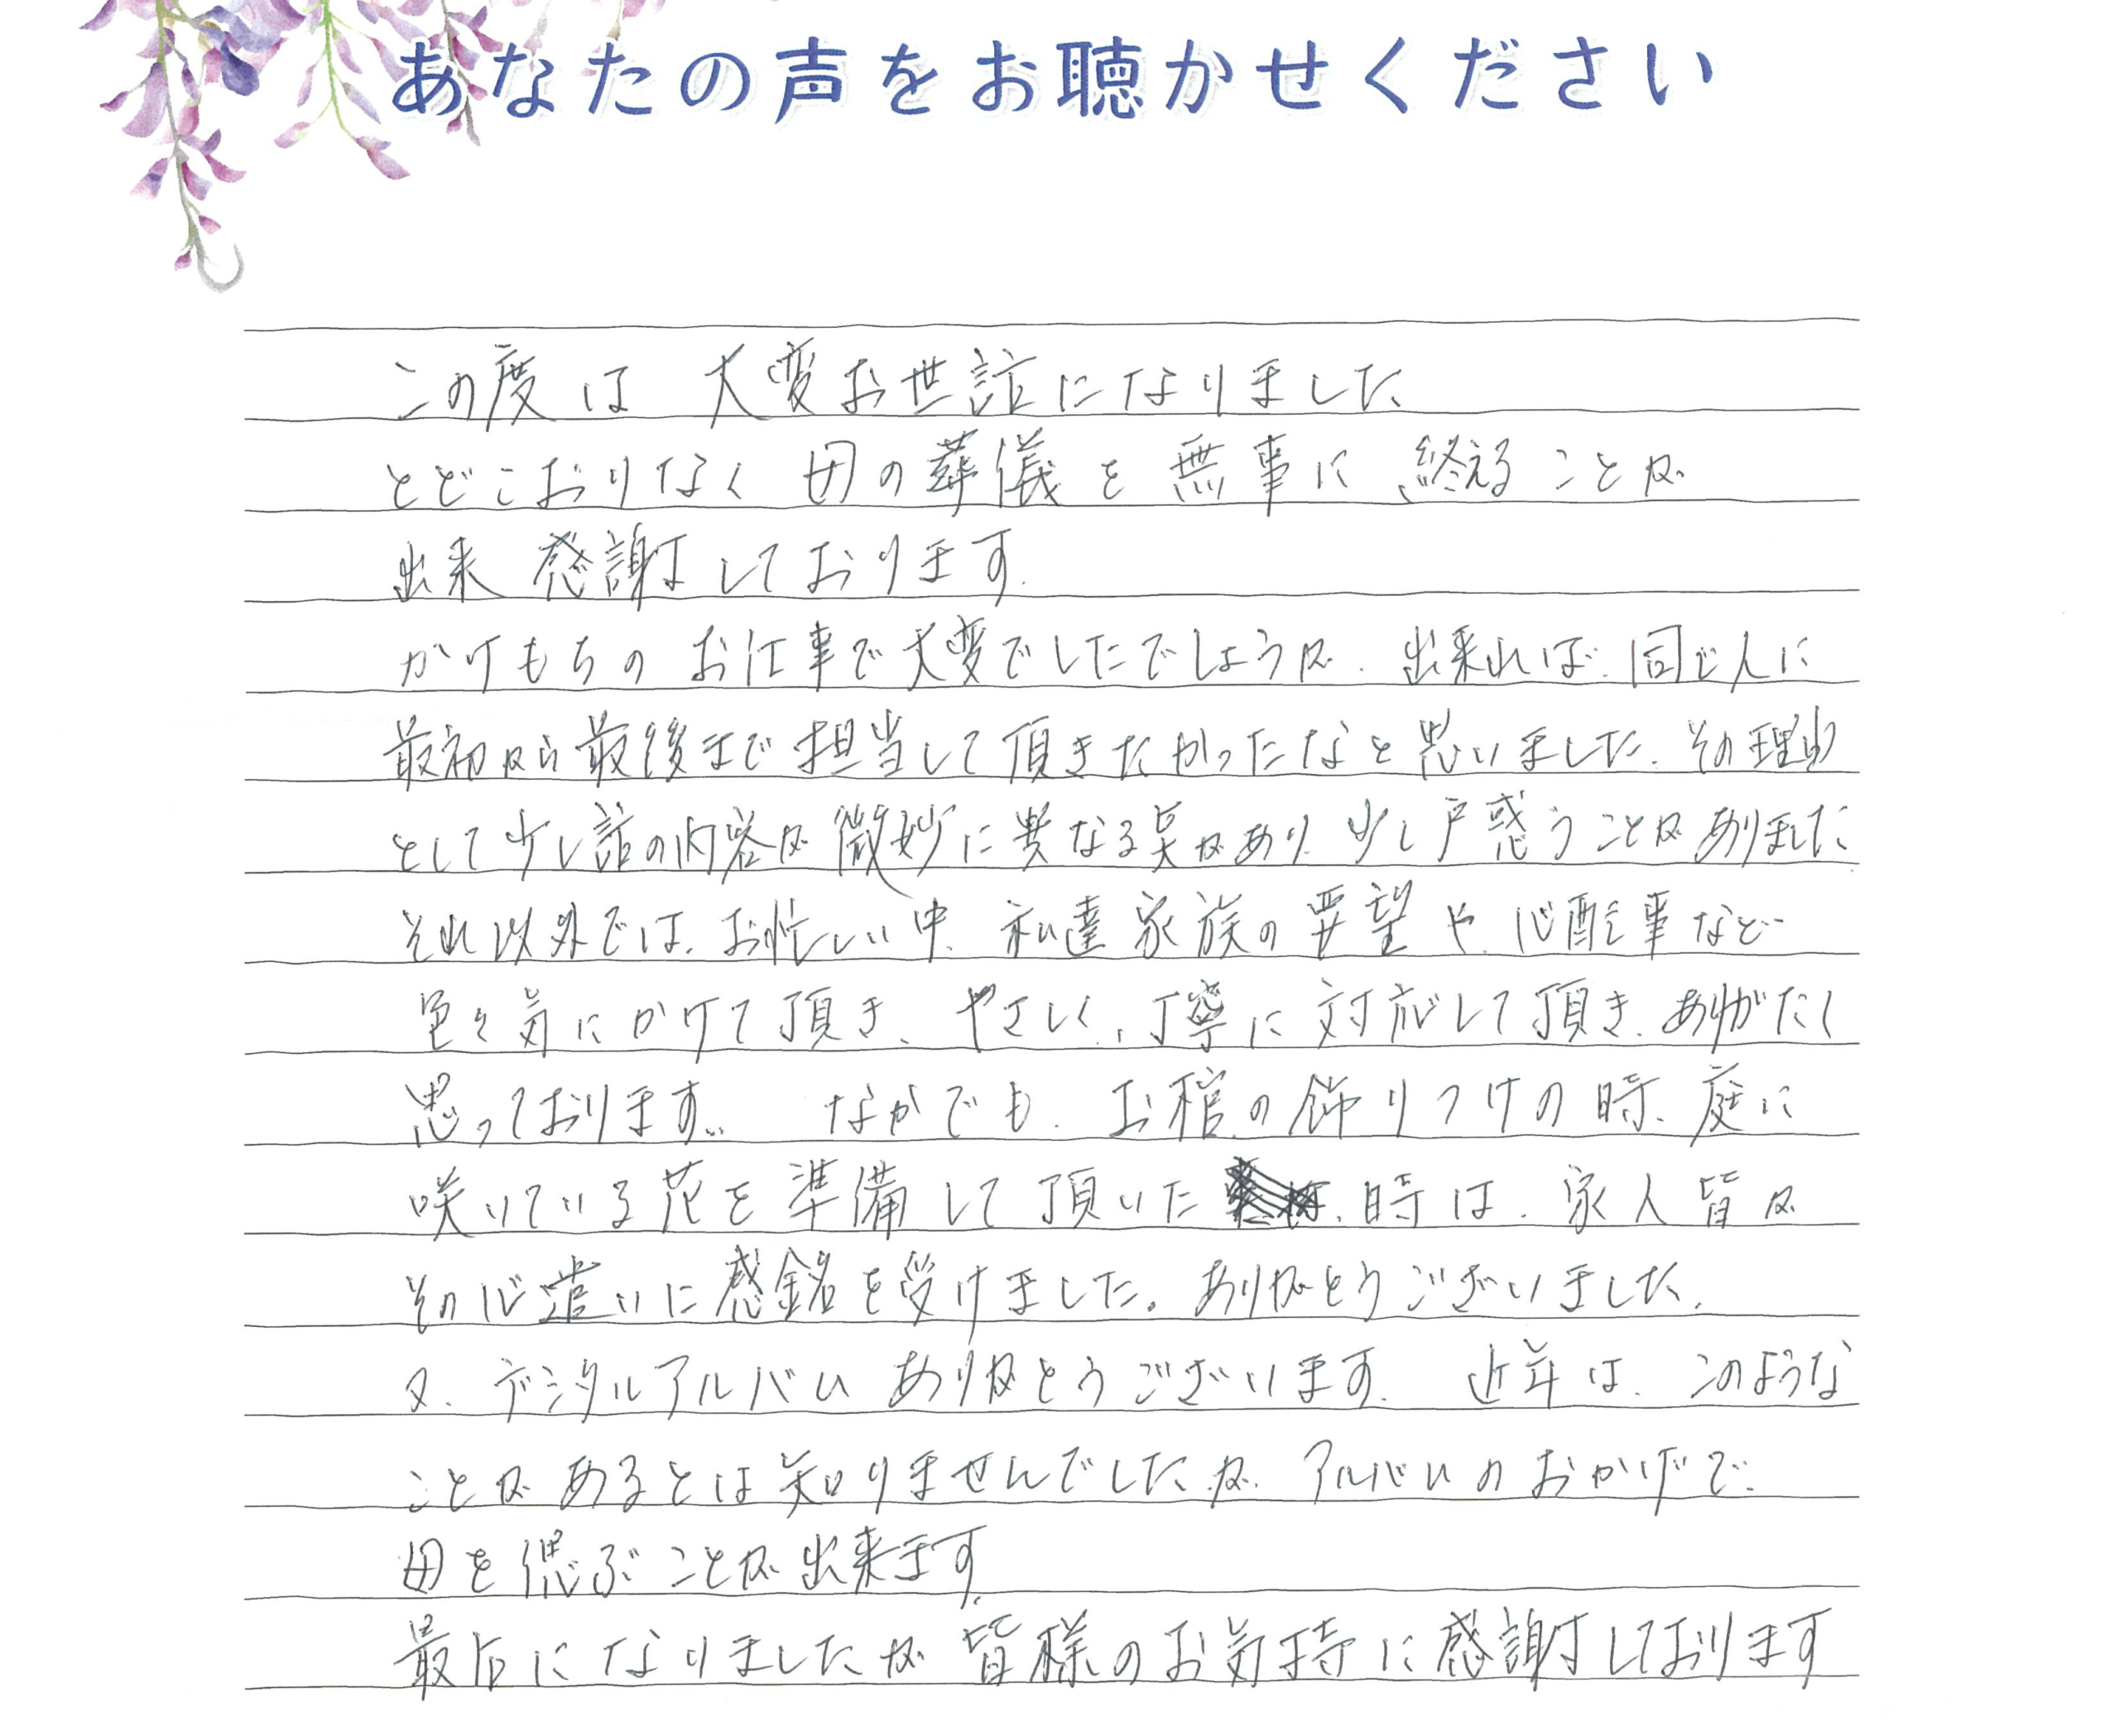 あなたの声をお聴かせください
この度は 大変お世話になりました
とどこおりなく 母の葬儀を無事に 終えることが
出来 感謝しております.
かけもちの お仕事で大変でしたでしょうが. 出来れば. 同じ人に
最初から最後まで担当して頂きたかったなと思いました. その理由
として少し話の内容が微妙に異なる点があり. 少し戸惑うことがありました
それ以外では、お忙しい中、私達家族の要望や、心配事など
色々気にかけて頂き、やさしく、丁寧に対応して頂き、ありがたく
思っております。 なかでも、お棺の飾りつけの時、庭に
咲いている花を準備して頂いた 時は、家人皆が
その心遣いに感銘を受けました。ありがとうございました.
又、デジタルアルバム ありがとうございます. 近年は、このような
ことがあるとは知りませんでしたが、アルバムのおかげで
母を偲ぶことが出来ます.
最后になりましたが 皆様のお気持に感謝しております